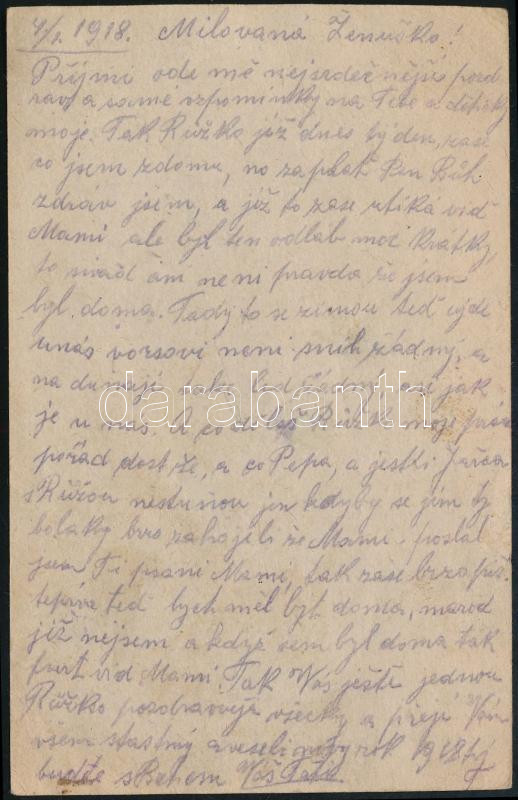 4/1. 1918. Milovaná Ženuško!
Přijmi ode mě nejsrdečnější pozd
rav a samé vzpomínky na Tebe a dětičky
moje. Tak Růžko již dnes týden, zase
co jsem z domu, no zaplať Pan Bůh
zdráv jsem, a již to zase utíká viď
Mami ale byl ten odlab moc krátky,
to ani není pravda že jsem
byl doma. Tady to se zimou teď ujde
unás vorsovi neni snih žádný, a
na dunaji led žádný, asi jak
je u nás. A co moje
pořád dost že, a co Pepa, a jestli Jarča
s Růžou nestůňou jen kdyby se jim ty
bolaky brzo zahojeli že Mami. poslal
jsem Ti psani Mami, tak zase brzo piš.
teprve teď bych měl být doma, marod
již nejsem a když sem byl doma tak
furt viď Mami. Tak Vás ještě jednou
Růžko pozdravuje všecky a přeji Vám
všem stastný a veseli nový rok 1918 ty
buďte s Bohem Váš Tatík
darabanth